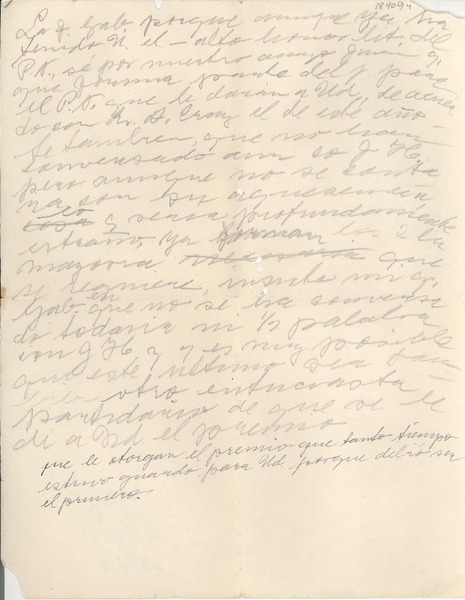 184094
La J. Gab. porque aunque ya ha
tenido U. el — alto honor lit. del
P. N., sé por nuestro amigo
que forma parte del J. para
el P. N. que le darán a Ud. de acuer
do con Dn. A. Cruz el de este año —
Sé también, que no han
conversado aun co J. H.,
pero aunque no se conta
ra con su aquiescencia,
eo
cosa q sería profundamente
extraño, ya forman los 2 la
mayoría necesaria que
se requiere, insisto mi q.
Gab. en que no se ha conversa
do todavía ni ½ palabra
con J. H. y es muy posible
que este último sea tam
bién otro entusiasta
partidario de que se le
dé a Ud el premio
que le otorgan el premio que tanto tiempo
estuvo guardo para Ud. porque debió ser
el primero.